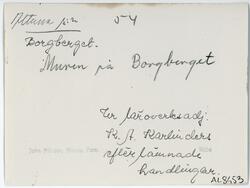 Altuna sn 54
Borgberget.
Muren på Borgberget
Ur läroverksadj.
K. A. Karlinders
efterlämnade
handlingar.
AL8453